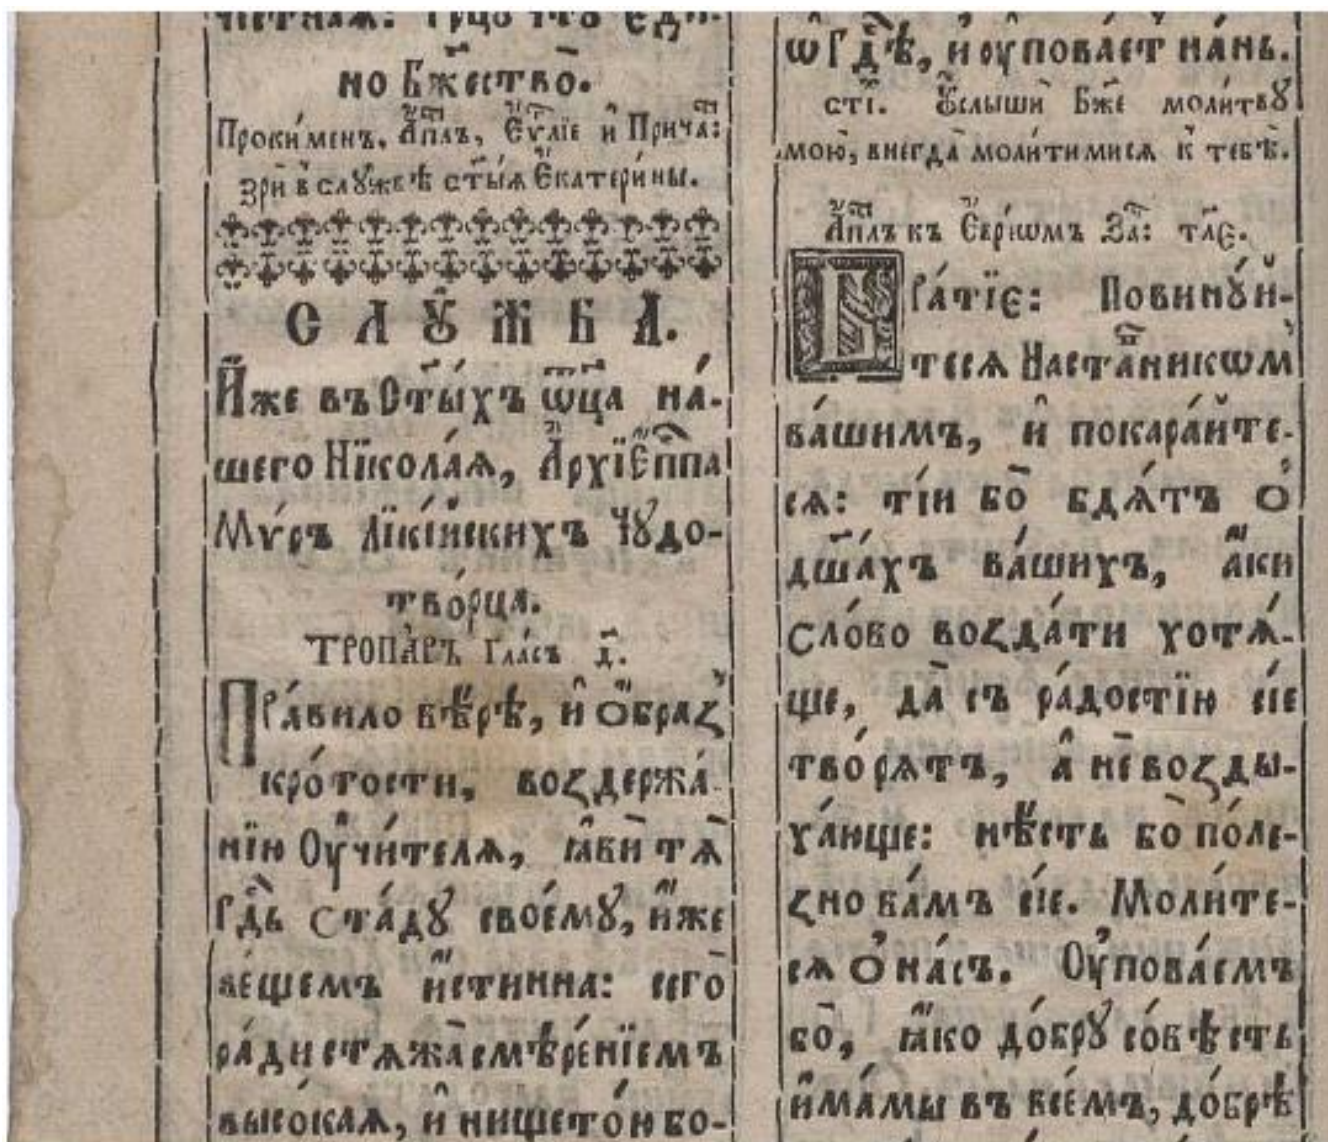 но Бж҃ество̀.
Проки́менъ, А҆п҃лъ, Е҆ѵ҃лїе и҆ Прича҃:
зрѝ в слꙋ́жбѣ ст҃ы́ѧ Е҆катери́ны.
СЛꙊ́ЖБА.
И҆́же въ Ст҃ы́хъ ѿц҃а на́-
шего Нїкола́ѧ, А҆рхїЕ҆пⷭ҇па
Мѵ́ръ Лїкі́йскихъ Чꙋдо-
тво́рца.
ТРОПА́РЪ Гла́съ д҃.
Пра́вило вѣ́рѣ, и҆ ѻ҆́браꙁ
кро́тости, воꙁдержа́-
нїю Оу҆чи́телѧ, ꙗ҆вѝ тѧ̀
Гдⷭ҇ь ста́дꙋ своемꙋ̀, ꙗ҆́же
ве́щемъ и҆́стинна: сегѡ̀
ра́ди стѧжа̀ смѣре́нїемъ
высо́каѧ, и҆ нището́ю бо-
ѡ Гдⷭ҇ѣ, и҆ оуповаетъ нань.
сті́. Оу҆слы́ши Бж҃е моли́твꙋ
мою̀, внегда̀ моли́тимисѧ к̾ тебѣ̀.
А҆п҃лъ къ Е҆вре́ѡмъ За҃: тл҃є.
Бра́тїє: Повинꙋ́й-
тесѧ Наста́вникѡм̾
ва́шимъ, и҆ покарѧ́йте-
сѧ: ті́и бо̀ бдѧ́тъ ѻ҆
дш҃а́хъ ва́шихъ, а҆́ки
сло́во воꙁда́ти хотѧ́-
ще, да̀ съ ра́достїю сіе
тво́рѧтъ, а҆ не воꙁды-
ха́юще: нѣ́сть бо̀ по́ле-
ꙁно ва́мъ сіе. Моли́те-
сѧ ѻ҆ на́съ. Оу҆пова́емъ
бо̀, ꙗ҆́ко до́брꙋ со́вѣсть
и҆́мамы въ все́мъ, до́брѣ